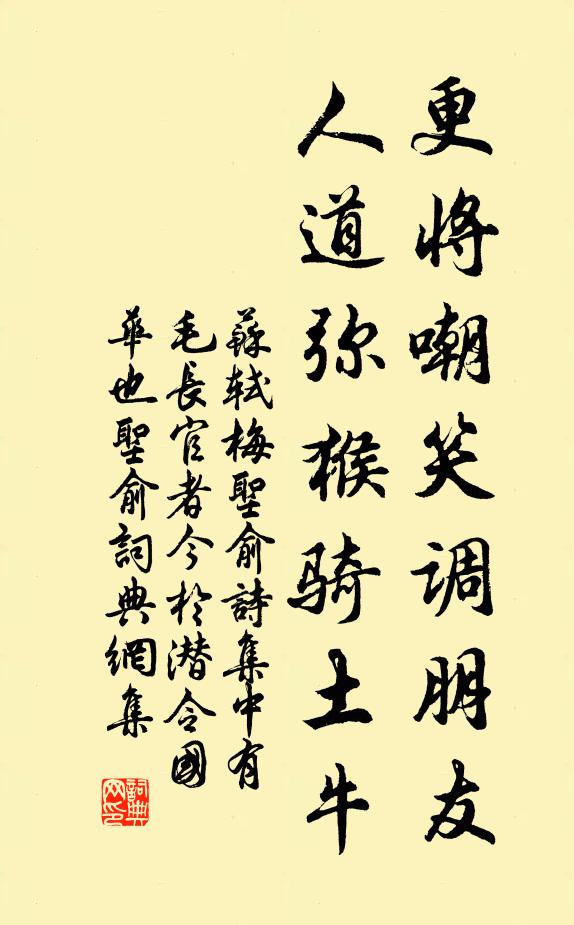 更將嘲笑调朋友
人道弥猴骑土牛
蘇軾梅聖俞詩集中有
毛長官者今於潛令國
華也聖俞詞典網集
詞典網印